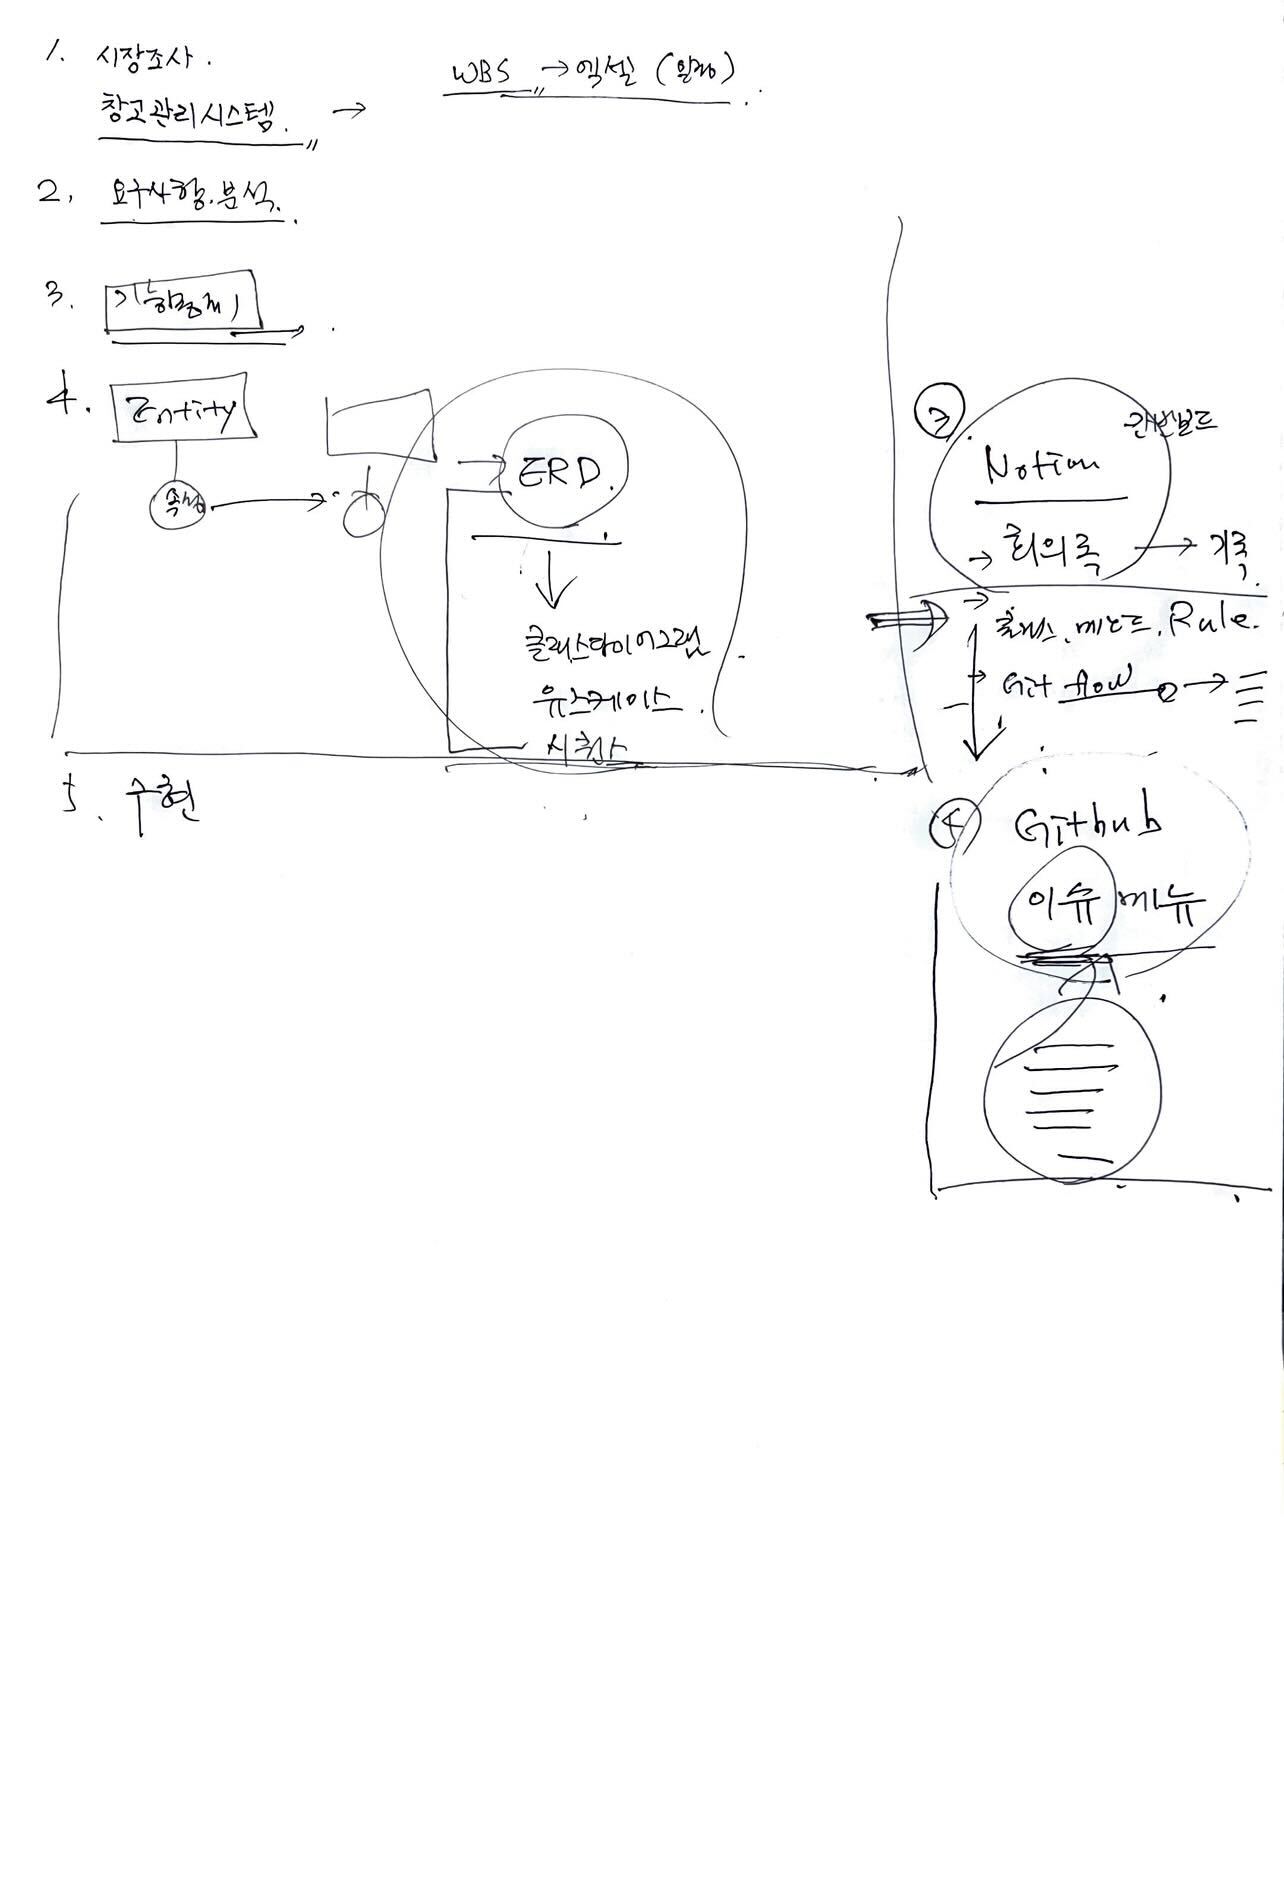 1. 시장조사.
WBS → 엑셀 (일정)
창고관리시스템. →
2. 요구사항.분석.
3.
4. Entity
속성
→ ERD.
클래스다이어그램
유스케이스.
시퀀스
5. 구현
3
칸반보드
Notion
→ 회의록 → 기록.
→ 클래스, 메소드, Rule.
→ Git flow →
4 Github
이슈 메뉴